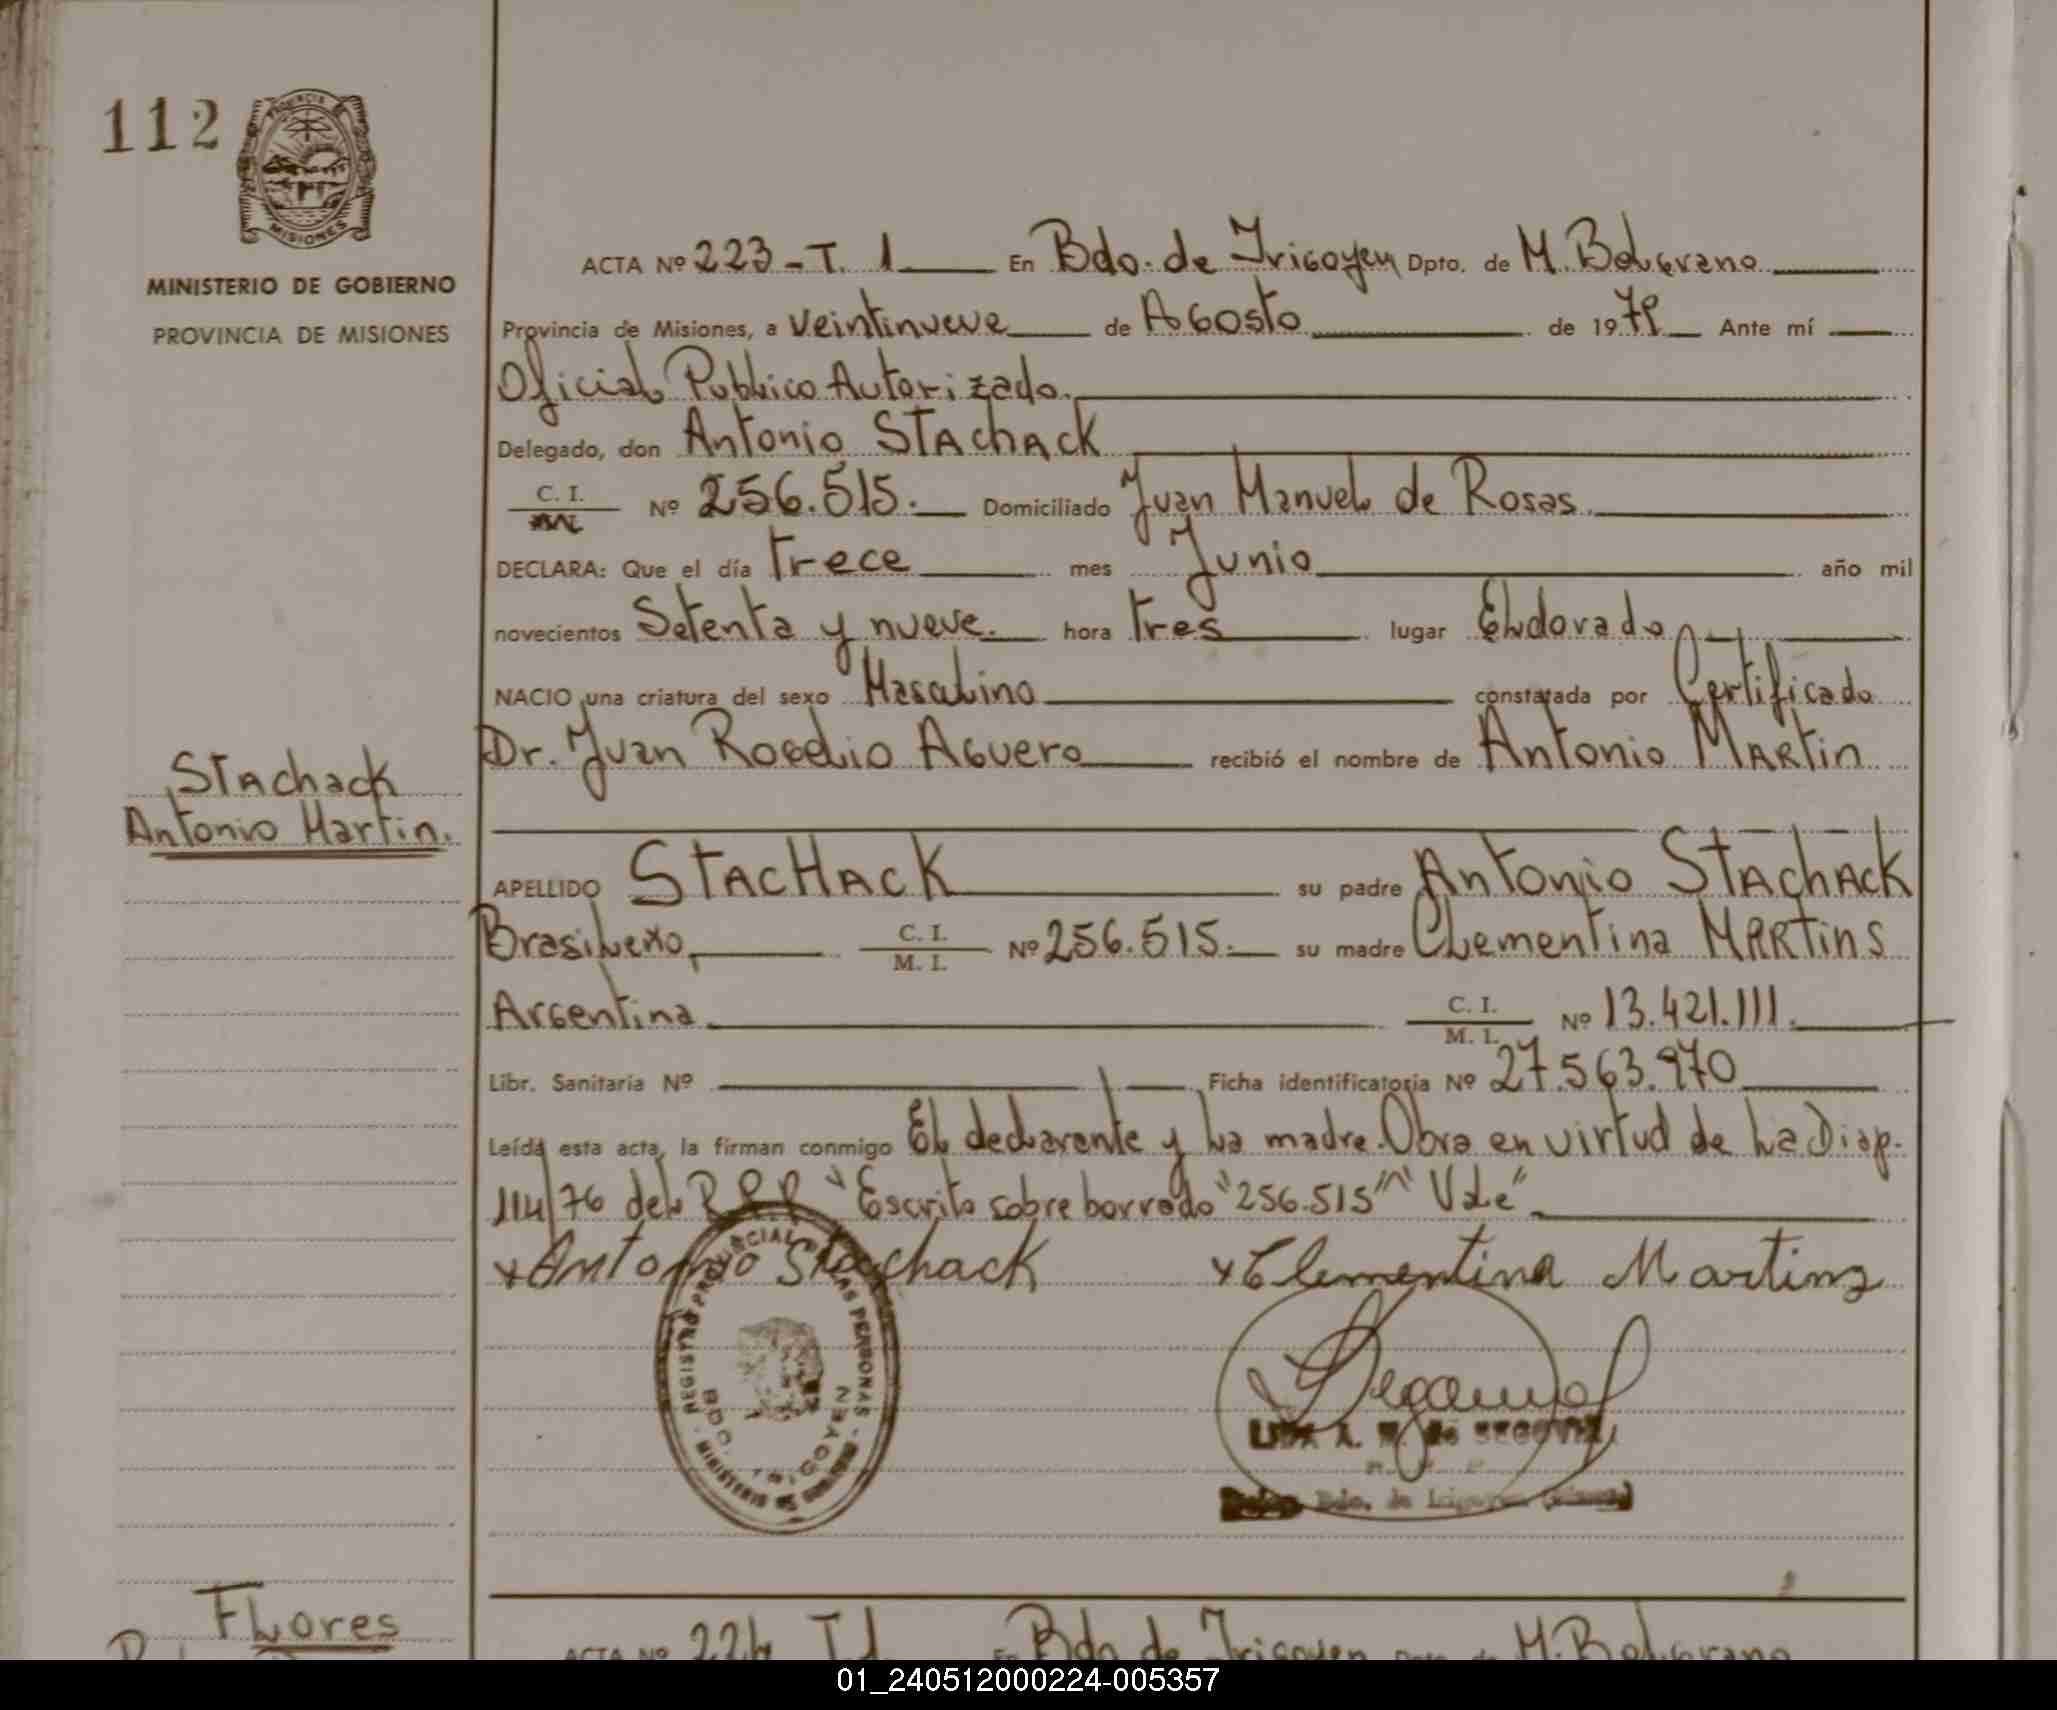 112
PROVINCIA DE
MISIONES
MINISTERIO DE GOBIERNO
PROVINCIA DE MISIONES
ACTA Nº 223-T. 1 En Bdo. de Irigoyen Dpto. de M. Belgrano
Provincia de Misiones, a veintinueve de Agosto de 1979 Ante mí
Oficial Publico Autorizado.
Delegado, don Antonio STAchACK
C. I. Nº 256.515. Domiciliado Juan Manuel de Rosas.
DECLARA: Que el día trece mes Junio año mil
novecientos Setenta y nueve. hora tres lugar Eldorado
NACIO una criatura del sexo Masculino constatada por Certificado
Dr. Juan Rogelio Aguero recibió el nombre de Antonio MARtin
Stachack
Antonio Martin.
APELLIDO STACHACK su padre Antonio STAchACK
Brasileño, C. I. M. I. Nº 256.515. su madre Clementina MARTins
Argentina C. I. M. I. Nº 13.421.111.
Libr. Sanitaria Nº Ficha identificatoria Nº 27.563.970
Leída esta acta, la firman conmigo El declarante y la madre. Obra en virtud de la Disp.
114/76 del R.P.P "Escrito sobre borrado "256.515"" Vale"
x Antonio Stachack x Clementina Martins
REGISTRO PROVINCIAL DE LAS PERSONAS
BDO. IRIGOYEN
MINISTERIO DE GOBIERNO
A. M. de SEGOVIA
Bdo. de Irigoyen
Flores
ACTA Nº 224 T.1 En Bdo de Irigoyen Dpto. de M. Belgrano
01_240512000224-005357